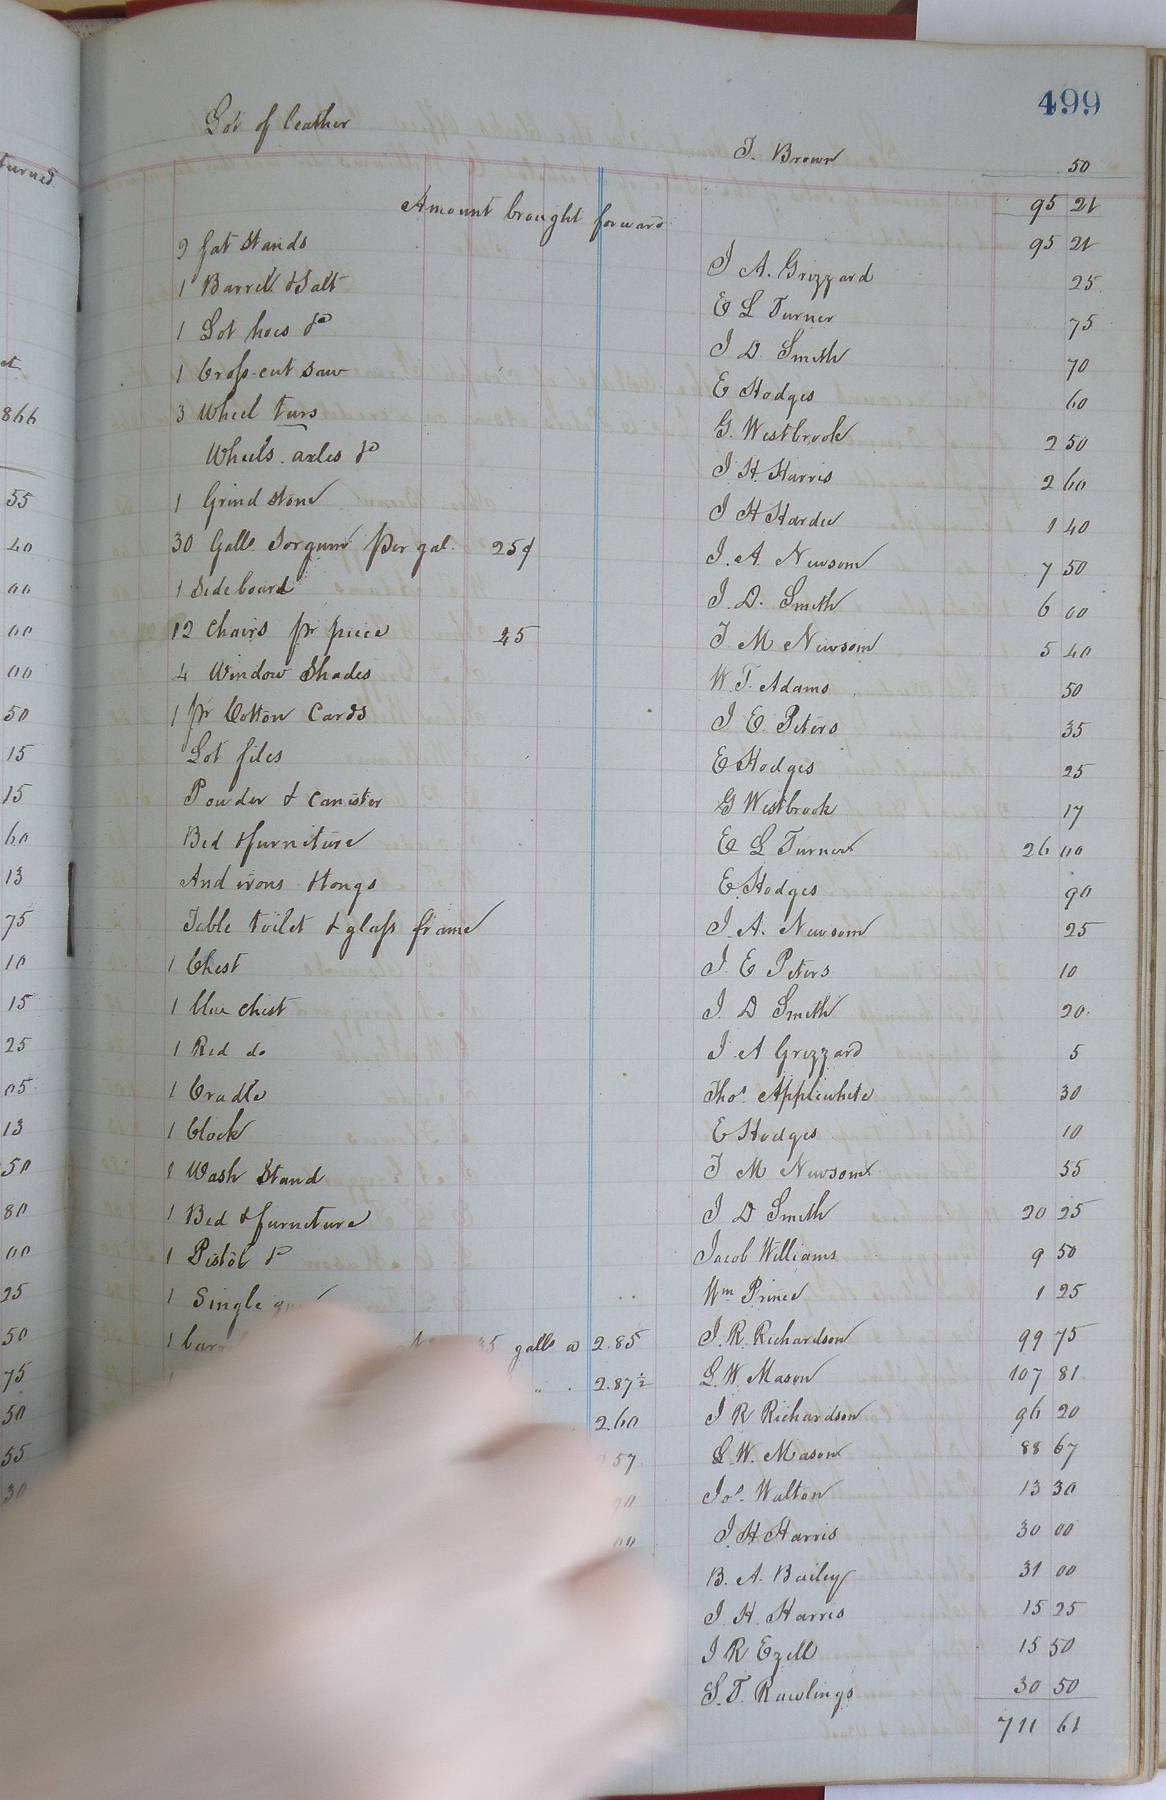 499
Lot of leather J. Brown 50
95 21
Amount brought forward 95 21
2 fat stands J A. Grizzard 25
1 Barrel & Salt E L Turner 75
1 Lot hoes &c J D. Smith 70
1 Cross-cut saw E Hodges 60
3 Wheel G. Westbrook 2 50
Wheels. axles &c J. H. Harris 2 60
1 Grind stone J H Hardee 1 40
30 Galls. Sorgum per gal. 25¢ J. A. Newsom 7 50
1 Sideboard J. D. Smith 6 00
12 Chairs pr piece 45 J. M Newsom 5 40
4 Window Shades W. J. Adams 50
1 pr Cotton Cards J E. Peters 35
Lot files E Hodges 25
Powder & canister G Westbrook 17
Bed & furniture E L Turner 26 00
And irons & tongs E. Hodges 90
Table toilet & glass frame J. A. Newsom 25
1 Chest J. E Peters 10
1 blue chest J. D Smith 20
1 Red do J. A Grizzard 5
1 Cradle Thos. Applewhite 30
1 Clock E Hodges 10
1 Wash Stand J M Newsom 55
1 Bed & furniture J D Smith 20 25
1 Pistol &c Jacob Williams 9 50
1 Single Wm Prince 1 25
1 35 galls @ 2.85 J. R. Richardson 99 75
" 2.87½ G. W Mason 107 81
2.60 J R Richardson 96 20
57 G. W. Mason 88 67
Jos. Walton 13 30
00 J. H Harris 30 00
B. A. Bailey 31 00
J. H. Harris 15 25
J R Ezell 15 50
S. T. Rawlings 30 50
711 61
turned
866
55
40
00
00
00
50
15
15
60
13
75
10
15
25
05
13
50
80
00
25
50
75
50
55
30